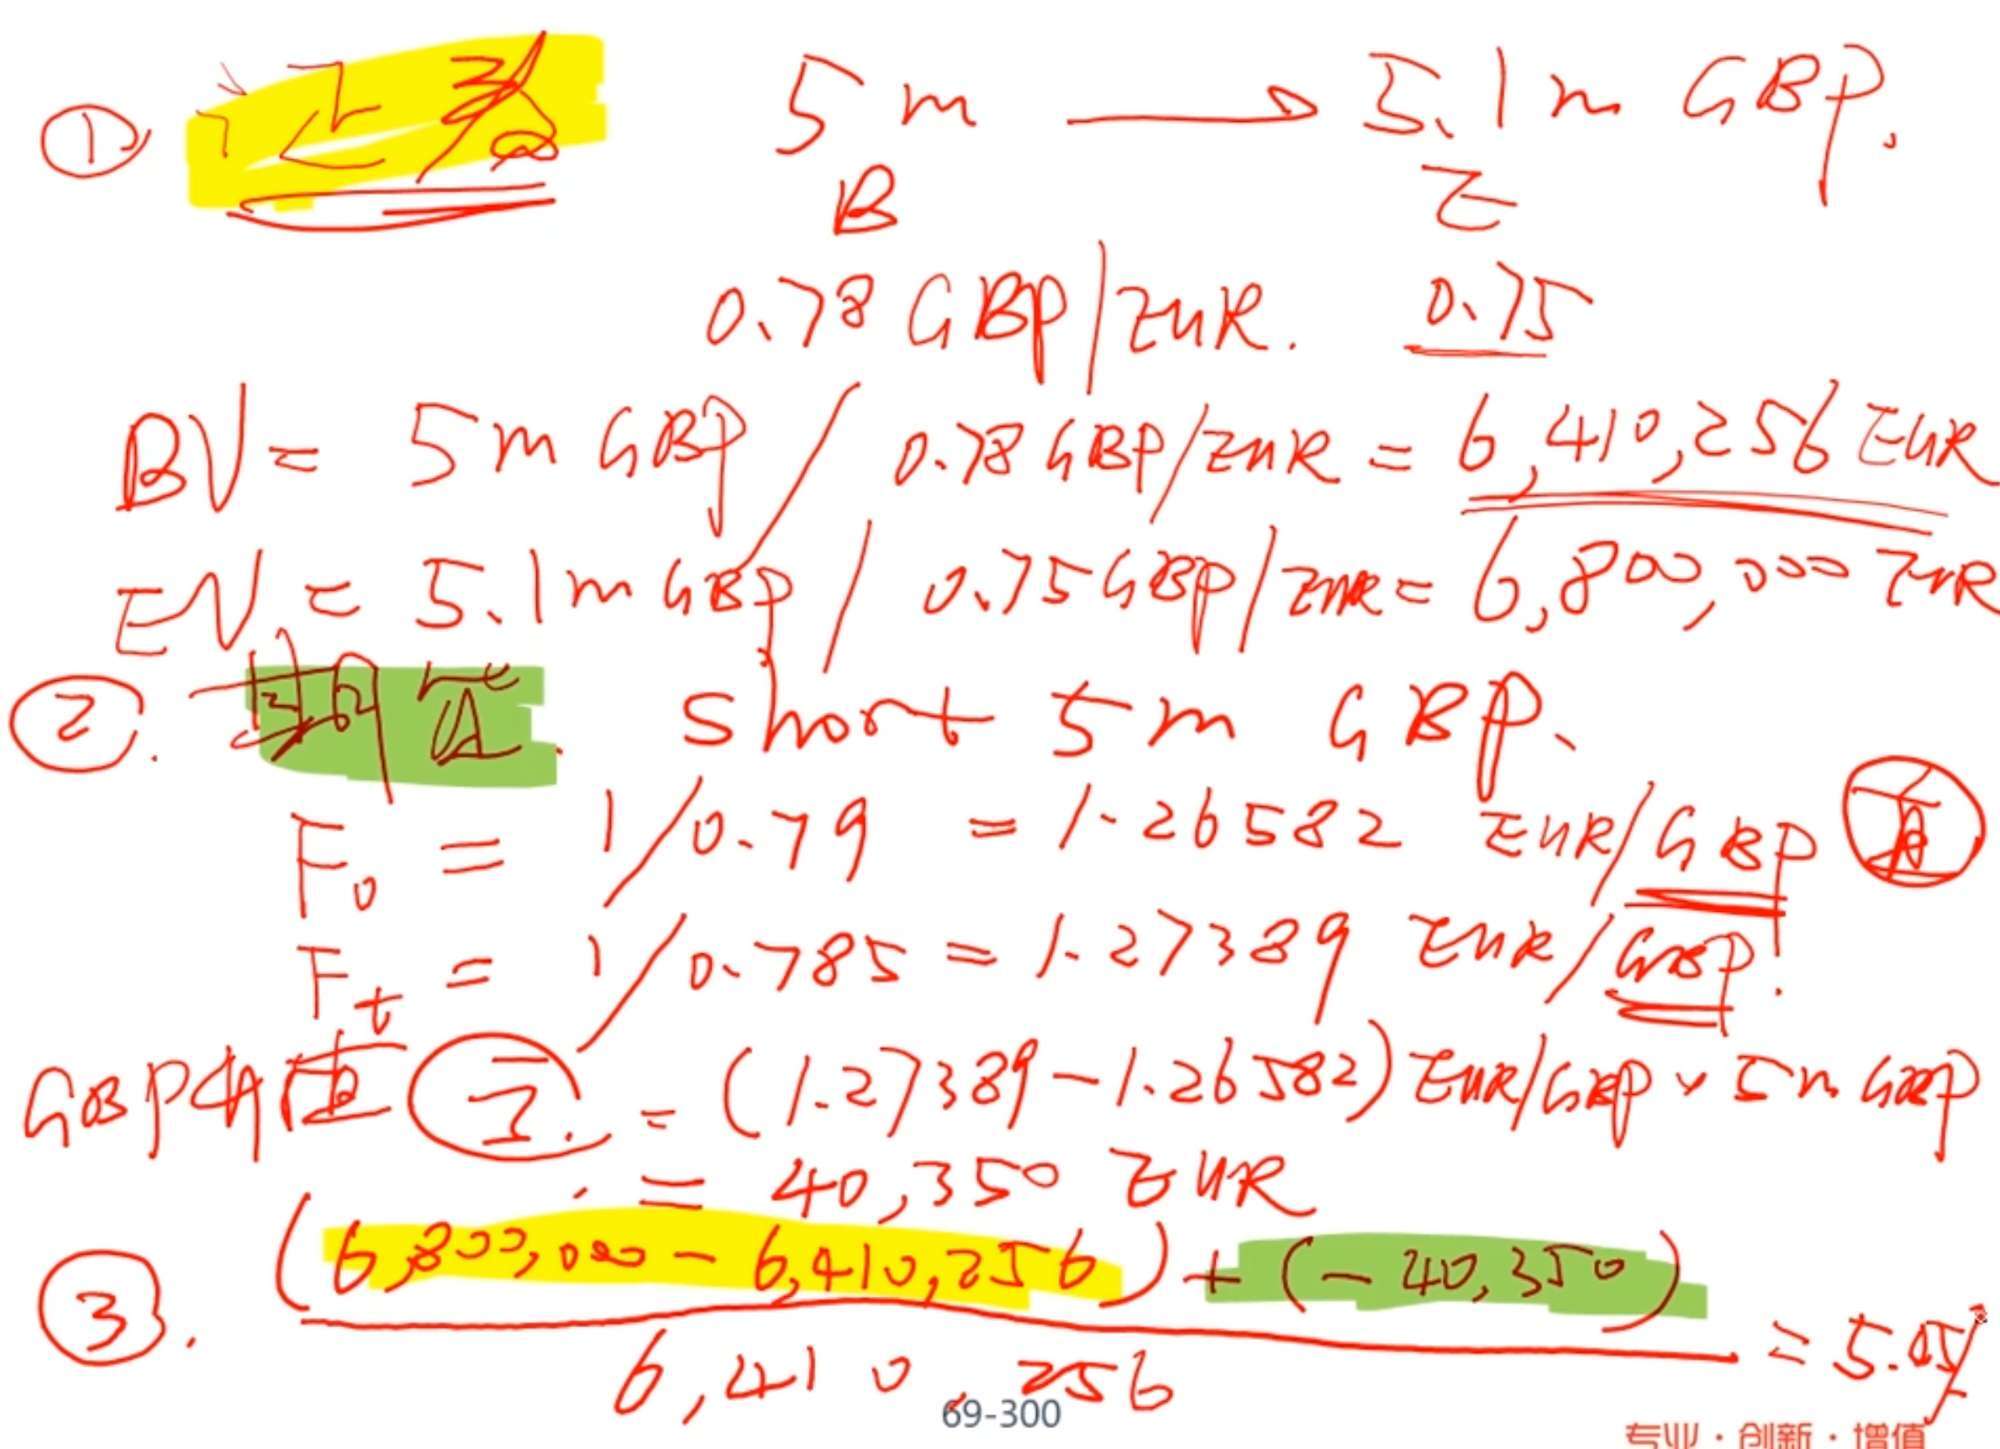 ① 证券 5m → 5.1m GBP.
B E
0.78 GBP/EUR. 0.75
BV = 5m GBP / 0.78 GBP/EUR = 6,410,256 EUR
EV = 5.1m GBP / 0.75 GBP/EUR = 6,800,000 EUR
②. 期货. short 5m GBP.
F₀ = 1/0.79 = 1.26582 EUR/GBP
Ft = 1/0.785 = 1.27389 EUR/GBP.
GBP升值 亏. = (1.27389-1.26582) EUR/GBP × 5m GBP
= 40,350 EUR
③. (6,800,000 - 6,410,256) + (-40,350)
6,410,256
= 5.45%
69-300
专业·创新·增值